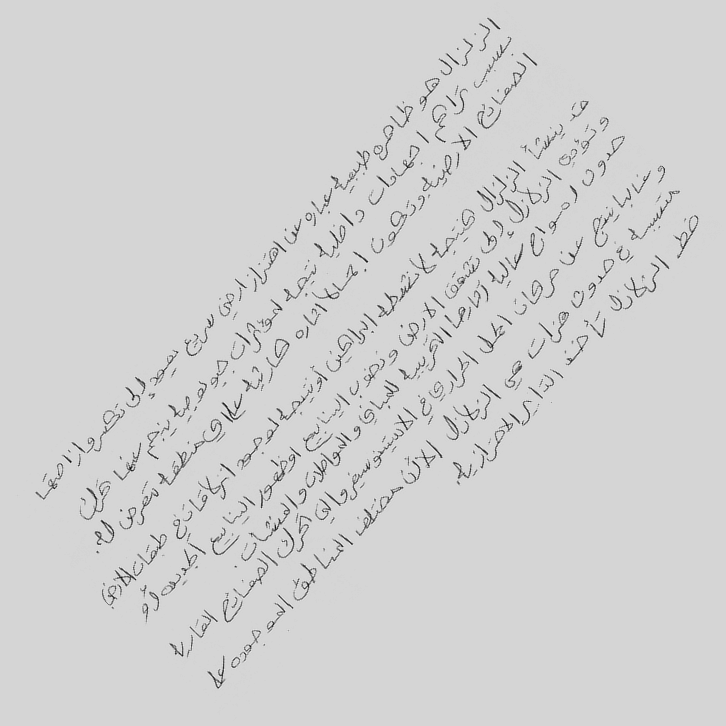 الزلزال هو ظاهره طبيعيه عباره عن اهتزاز ارضي سريع يعود إلى تكسر وازاحتها
بسبب تراكم اجهادات داخليه نتيجه لمؤثرات جيولوجيه ينجم عنها تحرك
الصفائح الارضيه وتكون اجمالا اثاره كارثيه على اي منطقه تتعرض له.
قد ينشأ الزلزال كنتيجه لانشطه البراكين أو نتيجه لوجود انزلاقات في طبقات الارض
وتؤدي الزلازل إلى تشقق الارض ونضوب الينابيع او ظهور الينابيع الجديده أو
حدوث امواج عاليه اثارها التخريبيه للمباني والمواصلات والمنشآت.
وغالبا ينتج عن حركات الحمل الحراري في الاستنوسفير والتي تحرك الصفائح القاريه
متسببه في حدوث هزات هي الزلازل الاتي مختلف المناطق الموجوده على
خط الزلازل تأخذ التدابير الاحترازيه.